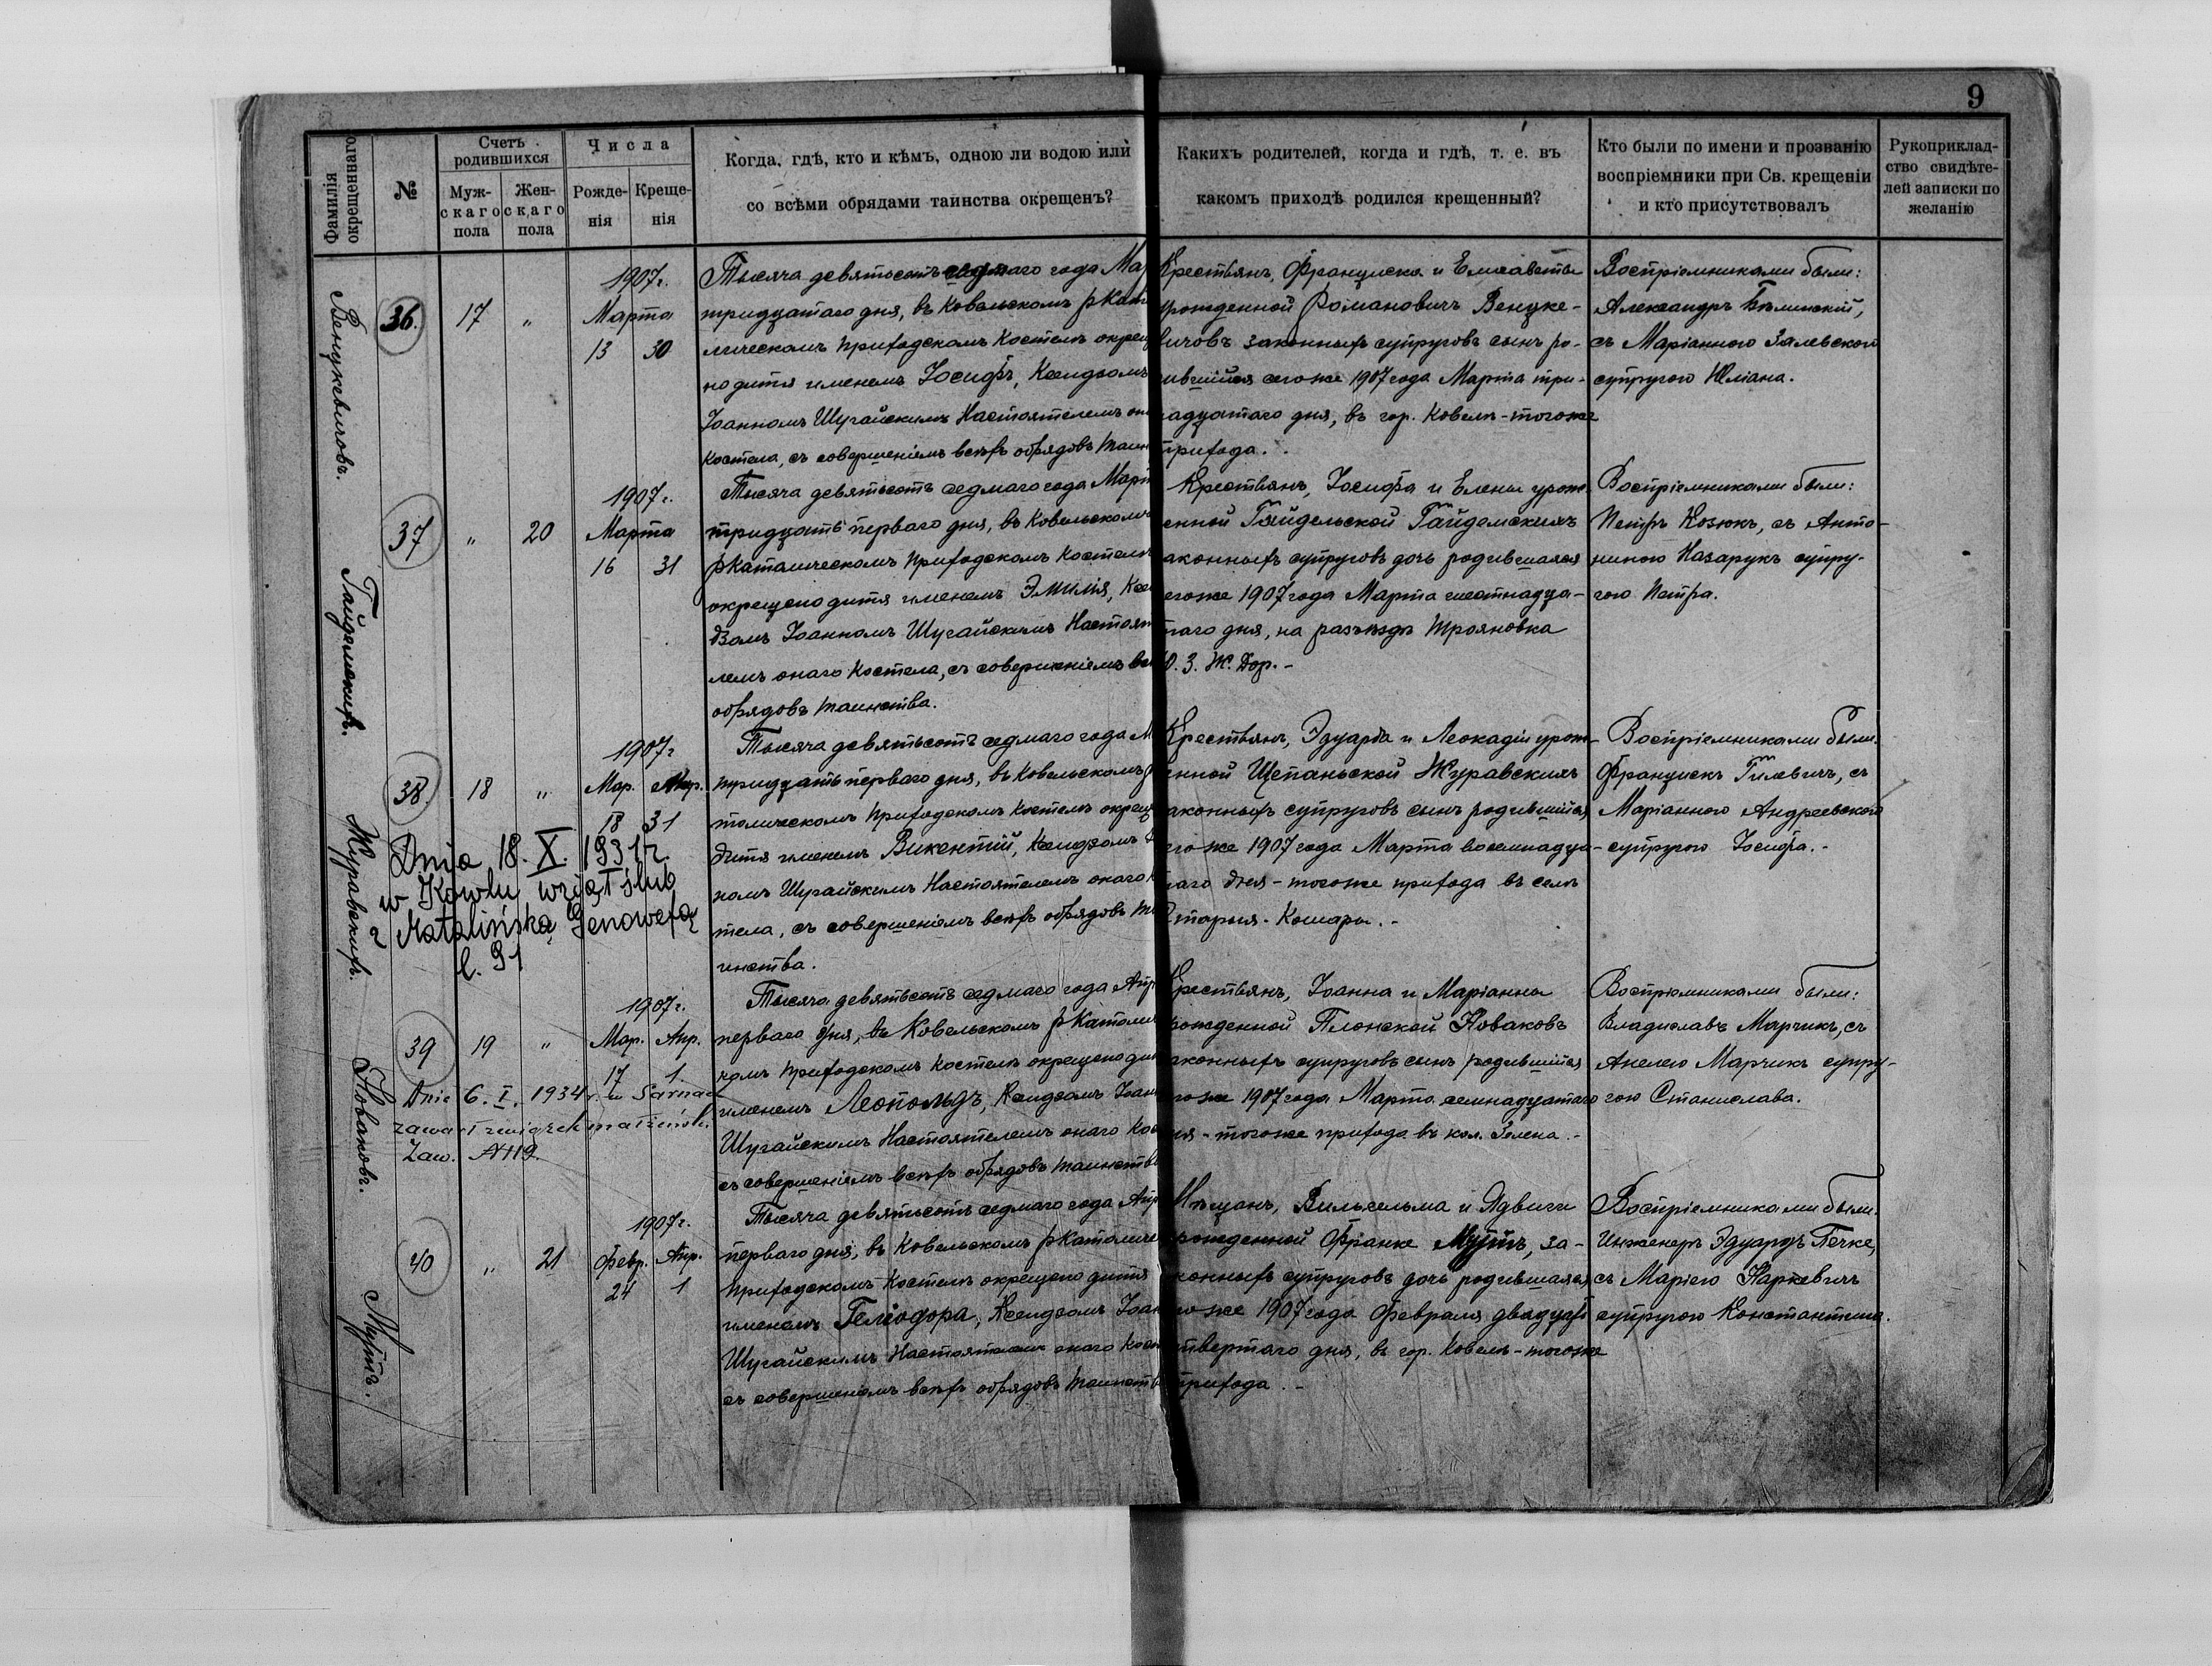 9
Фамилія окрещеннаго
№
Счетъ родившихся
Муж-
скаго
пола
Жен-
скаго
пола
Числа
Рожде-
нія
Креще-
нія
Когда, гдѣ, кто и кѣмъ, одною ли водою или
со всѣми обрядами таинства окрещенъ?
Какихъ родителей, когда и гдѣ, т. е. въ
какомъ приходѣ родился крещенный?
Кто были по имени и прозванію
воспріемники при Св. крещеніи
и кто присутствовалъ
Рукоприклад-
ство свидѣте-
лей записки по
желанію
Венцкевичовъ.
36.
17
"
1907г.
Марта
13 30
Тысяча девятьсотъ седмаго года Мар
тридцатаго дня, въ Ковельскомъ рКат
лическомъ приходскомъ костелѣ окрещ
но дитя именемъ Іосифъ, Ксендзомъ
Іоанномъ Шугайскимъ Настоятелемъ он
костела, съ совершеніемъ всѣхъ обрядовъ таин
Крестьянъ, Франциска и Елисаветы
урожденной Романовичъ Венцке-
вичовъ законныхъ супруговъ сынъ ро-
дившійся сего же 1907 года Марта три-
надцатаго дня, въ гор. Ковель - тогоже
прихода.
Воспріемниками были:
Александръ Бѣлинскій,
съ Маріанною Залевскою
супругою Юліана.
Гайдемскихъ.
37
"
20
1907г.
Марта
16 31
Тысяча девятьсотъ седмаго года Март
тридцать перваго дня, въ Ковельскомъ
рКатолическомъ приходскомъ костелѣ
окрещено дитя именемъ Эмилія, Ксен
дзомъ Іоанномъ Шугайскимъ Настоят
лемъ онаго костела, съ совершеніемъ вс
обрядовъ таинства.
Крестьянъ, Іосифа и Елены урож-
енной Гайдельской Гайдемскихъ
аконныхъ супруговъ дочь родившаяся
егоже 1907 года Марта шестнадца-
таго дня, на разъѣздѣ Трояновка
Ю. З. Ж. Дор. -
Воспріемниками были:
Петръ Козюкъ, съ Анто-
ниною Назарукъ супру-
гою Петра.
Журавскихъ.
38.
18
"
1907г
Мар. Мар.
18 31
Dnia 18. X. 1931 r.
w Kowlu wziął ślub
z Natalińską Genowefą
l. 91
Тысяча девятьсотъ седмаго года М
тридцать перваго дня, въ Ковельскомъ р
толическомъ приходскомъ костелѣ окрещ
дитя именемъ Викентій, Ксендзомъ
номъ Шугайскимъ Настоятелемъ онаго
тела, съ совершеніемъ всѣхъ обрядовъ та
инства.
Крестьянъ, Эдуарда и Леокадіи урож-
енной Щепаньской Журавскихъ
аконныхъ супруговъ сынъ родившійся
егоже 1907 года Марта восемнадца-
таго дня - тогоже прихода въ селѣ
Старыя - Кошары. -
Воспріемниками были:
Францискъ Гилевичъ, съ
Маріанною Андреевскою
супругою Іосифа. -
Новаковъ.
39
19
"
1907г.
Мар. Апр.
17 1
Dnia 6. I. 1934 r. w Sarnach
zawarł związek małżeński.
Zaw. №119.
Тысяча девятьсотъ седмаго года Апр
перваго дня, въ Ковельскомъ рКатоли
комъ приходскомъ костелѣ окрещено ди
именемъ Леопольдъ, Ксендзомъ Іоан
Шугайскимъ Настоятелемъ онаго Кос
съ совершеніемъ всѣхъ обрядовъ таинств
Крестьянъ, Іоанна и Маріанны
рожденной Плонской Новаковъ
аконныхъ супруговъ сынъ родившійся
гоже 1907 года Марта семнадцатаго
ня - тогоже прихода въ кол. Зелена. -
Воспріемниками были:
Владиславъ Марчикъ, съ
Анелею Марчикъ супру-
гою Станислава.
Мутъ.
40
"
21
1907г.
Февр. Апр.
24 1
Тысяча девятьсотъ седмаго года Апр
перваго дня, въ Ковельскомъ рКатоличе
приходскомъ костелѣ окрещено дитя
именемъ Геліодора, Ксендзомъ Іоан
Шугайскимъ Настоятелемъ онаго кост
съ совершеніемъ всѣхъ обрядовъ таинств
Мѣщанъ, Вильгельма и Ядвиги
рожденной Франке Мутъ, за-
конныхъ супруговъ дочь родившаяся
гоже 1907 года Февраля двадцат
четвертаго дня, въ гор. Ковель - тогоже
прихода. -
Воспріемниками были:
Инженеръ Эдуардъ Печке,
съ Маріею Наркевичъ
супругою Константина.